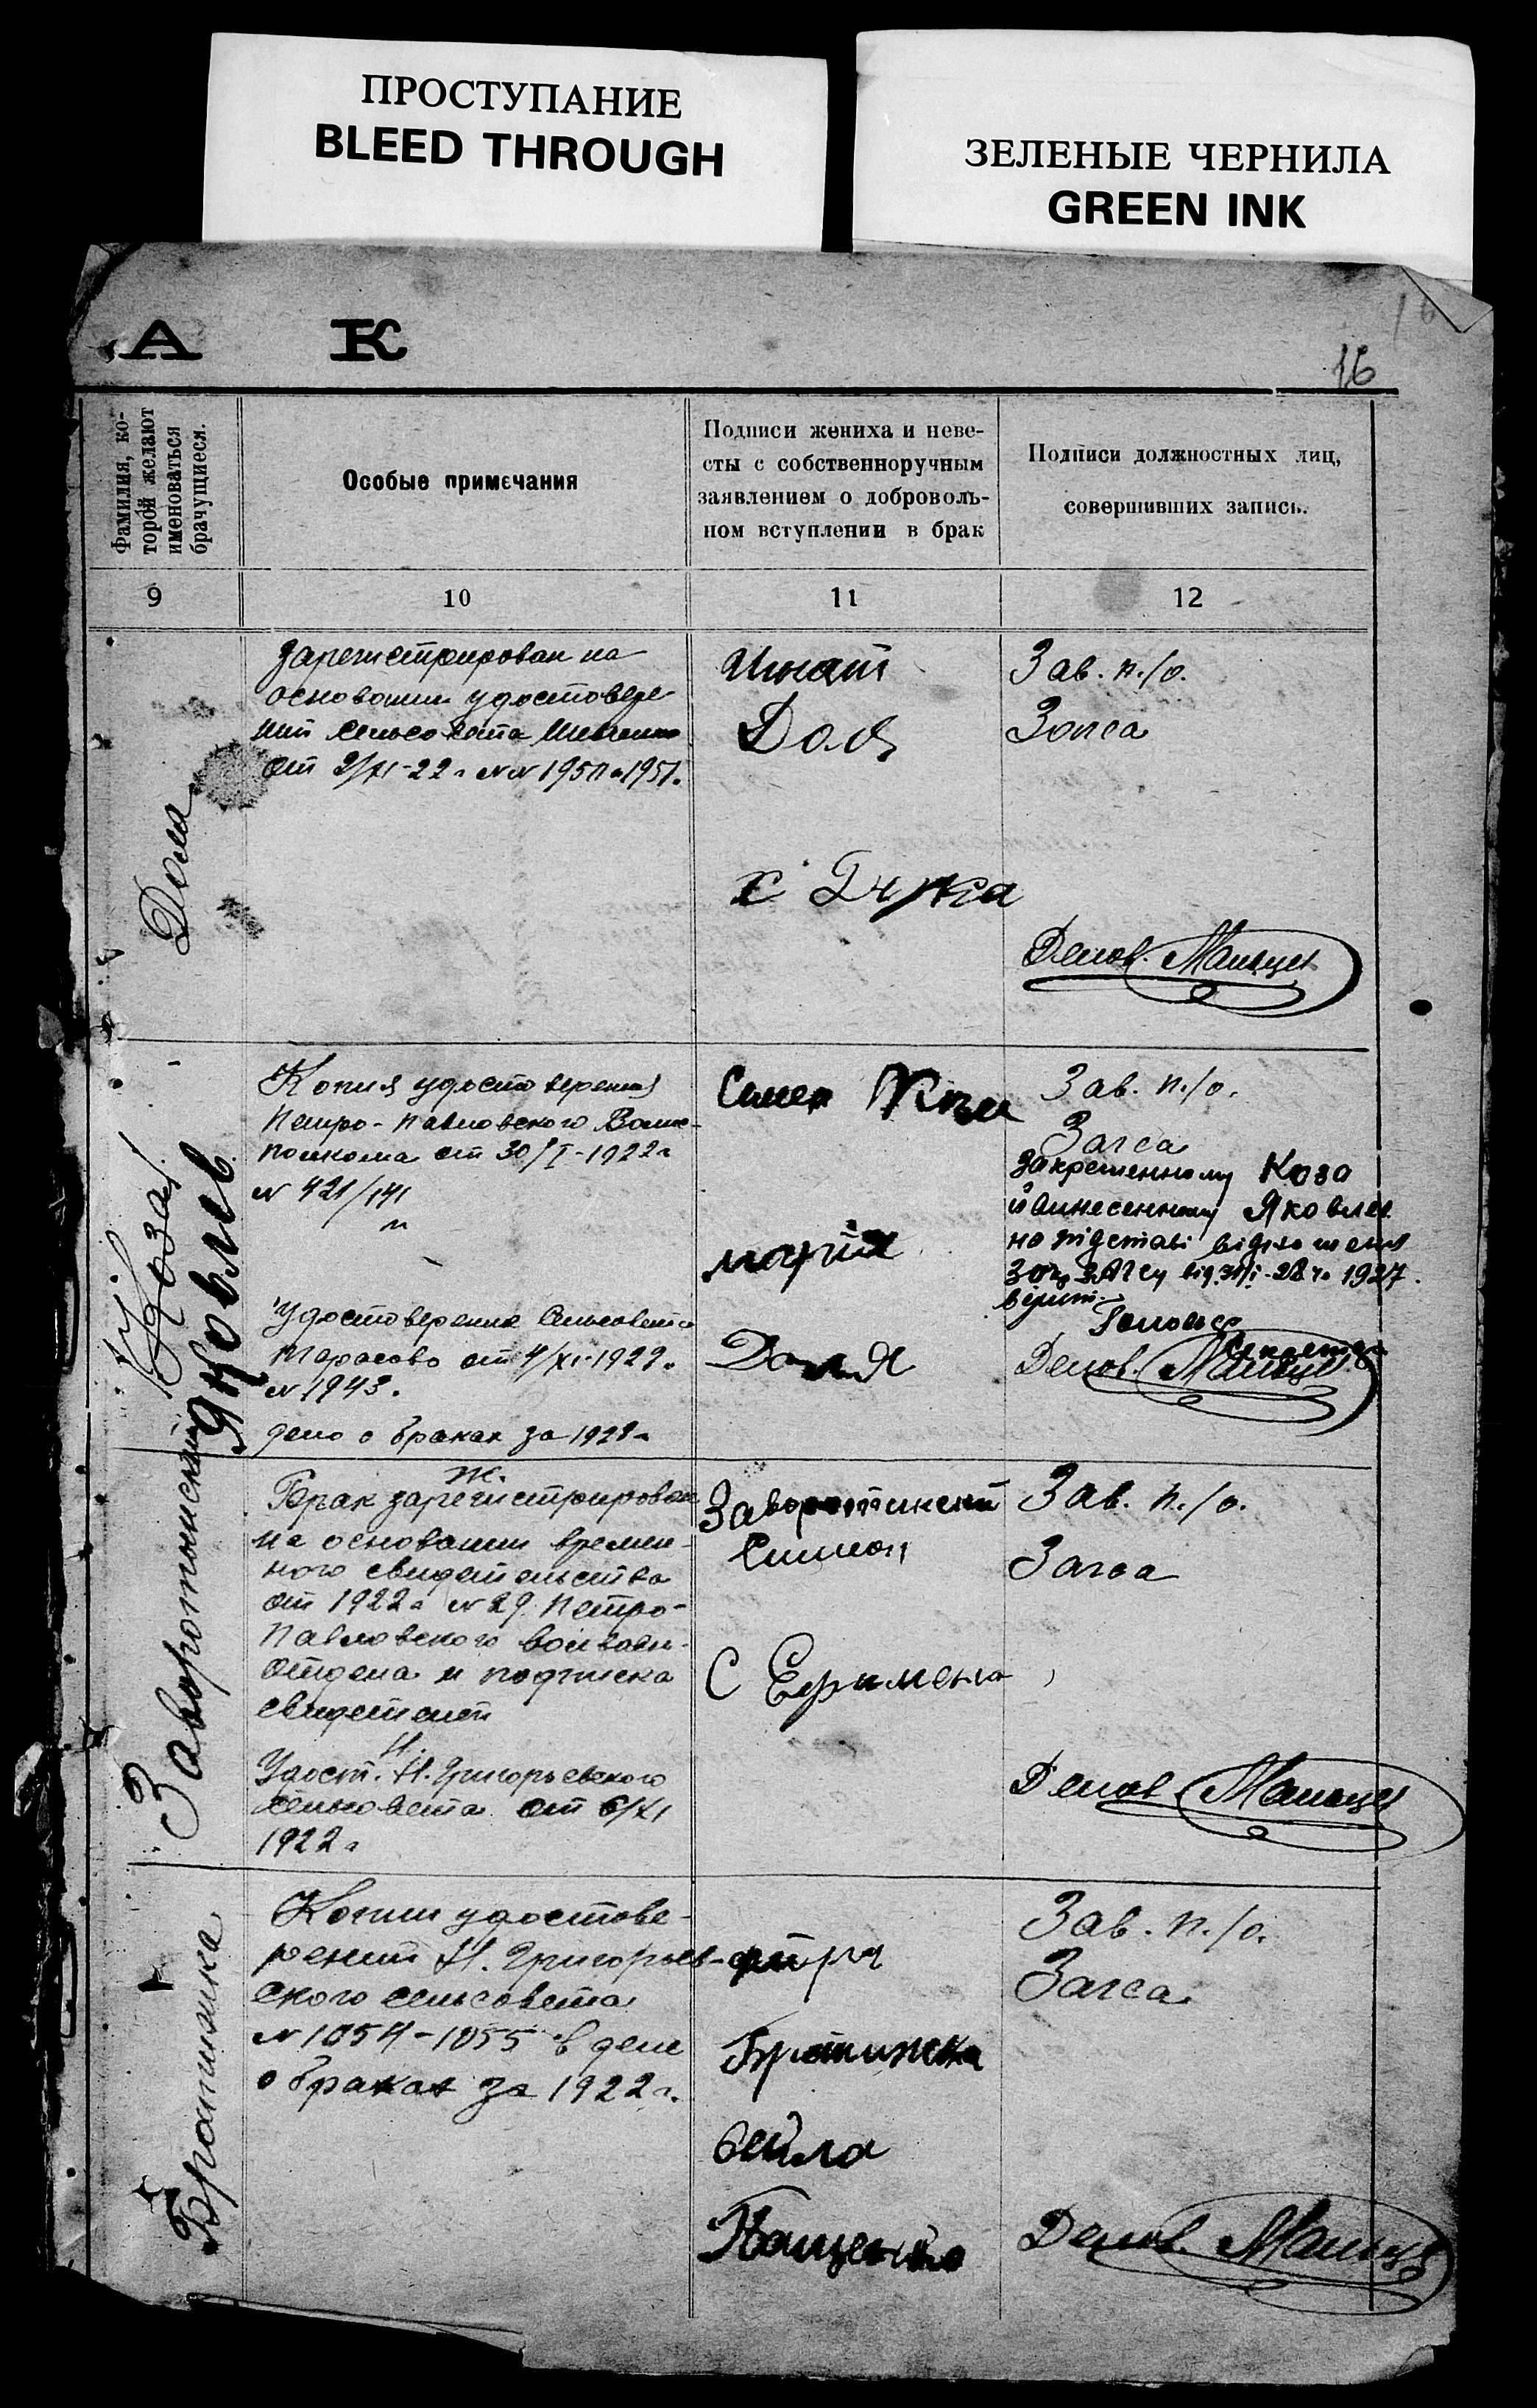 ПРОСТУПАНИЕ
BLEED THROUGH
ЗЕЛЕНЫЕ ЧЕРНИЛА
GREEN INK
А К
16
16
Фамилия, ко-
торой желают
именоваться
брачущиеся.
Особые примечания
Подписи жениха и неве-
сты с собственноручным
заявлением о доброволь-
ном вступлении в брак
Подписи должностных лиц,
совершивших запись.
9
10
11
12
Доля
Зарегистрирован на
основании удостовере
ний Сельсовета
от 2/XI-22г NN 1950 и 1951.
Игнат
Доля
Зав. п./о.
Загса
Делов. Мальцев
Коза
Яковлев
Копия удостоверения
Петро-Павловского Волис-
полкома от 30/I-1922г
N 421/141
Удостоверение Сельсовета
Тарасово от 4/XI-1922г.
N 1943.
дело о браках за 1922г
Семен Коза
Мария
Доля
Зав. п./о.
Загса
Закресленному Коза
й винесенному Яковлев
на підставі відношення
ЗАГСу від 1927.
вірит
Секретар
Делов. Мальцев
Заворотынский
Ж.
Брак зарегистрирован
на основании времен-
ного свидетельства
от 1922г N 29. Петро-
Павловского
отдела и подписка
свидетелей
Н.
Удост. Н. Григорьевского
Сельсовета от 6/XI
1922г
Заворотинский
Симеон
С Еримена
Зав. п./о.
Загса
Делов Мальцев
Братишка
Копии удостове-
рений Н. Григорьев-
ского сельсовета
N 1054-1055 в деле
о браках за 1922г.
Братишка
Пащенко
Зав. п./о.
Загса
Делов. Мальцев